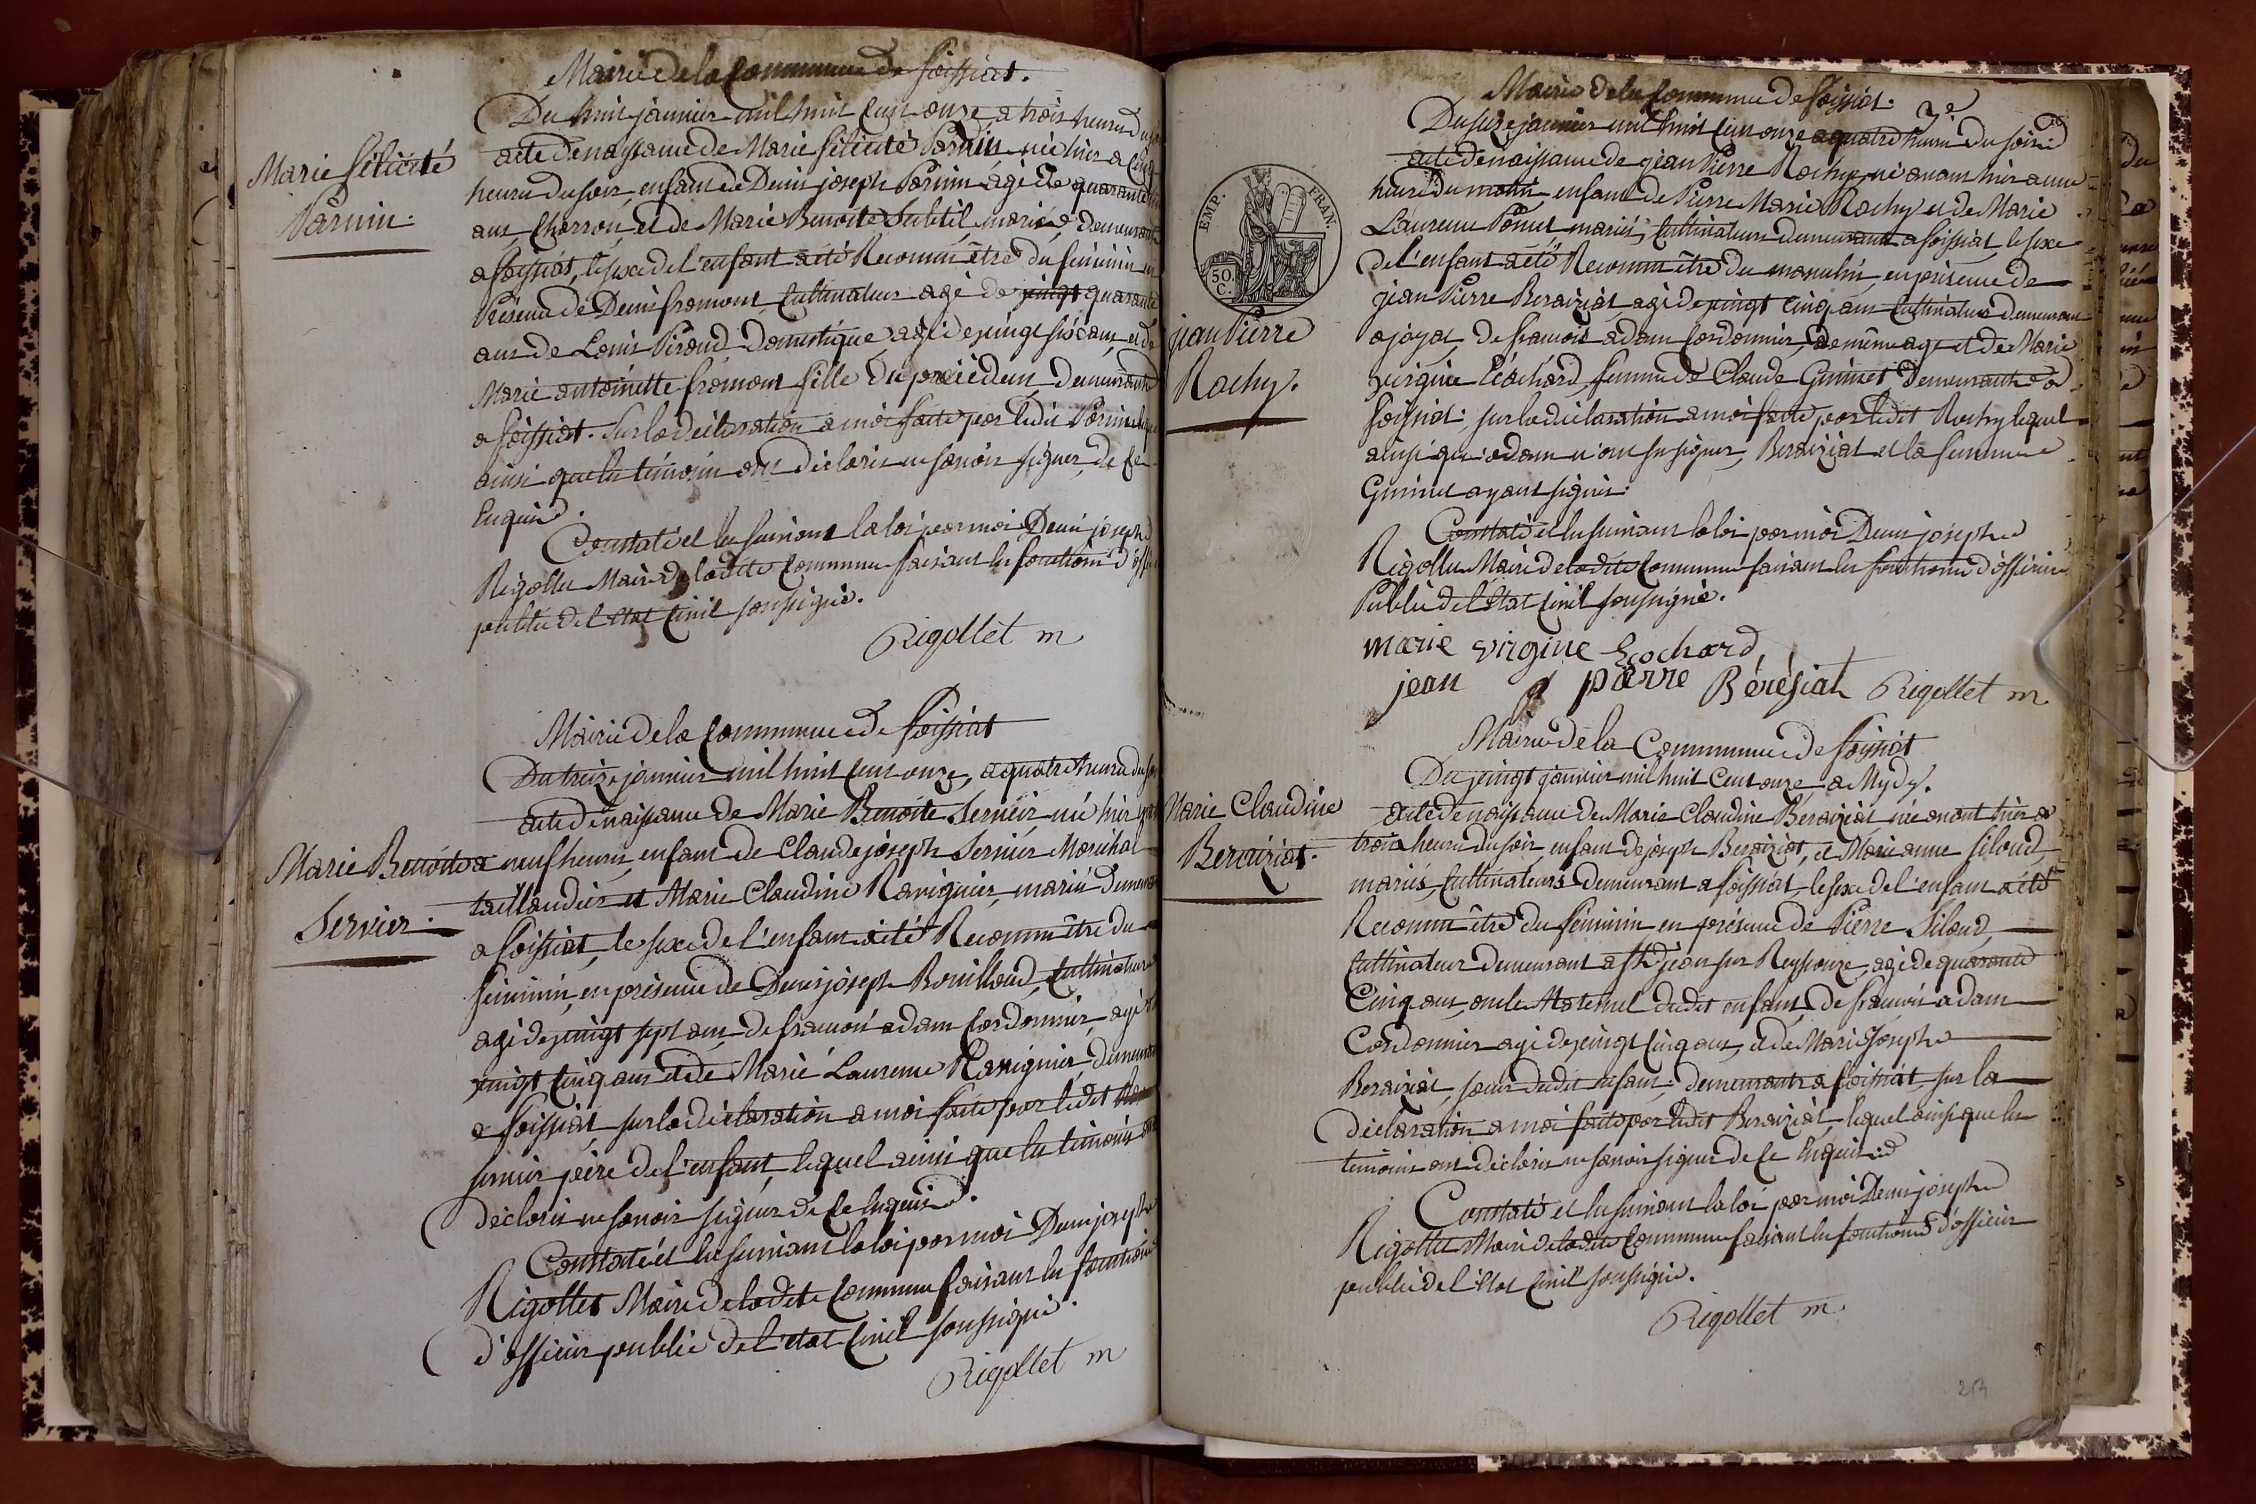 Mairie de la Commune de foissiat.
Du huit janvier mil huit cent onze, a trois heures du
acte de naissance de Marie félicité Parnin née hier a cinq
heures du soir, enfant de Denis joseph Parnin agé de quarante
ans Charron, et de Marie Benoite Subtil mariés, demeurant
a foissiat, le sexe de l'enfant a été Reconnu être du feminin en
Présence de Denis fromont, Cultivateur agé de vingt quarante
ans de Louis Piroud Domestique, agé de vingt six ans, et de
Marie antoinette fromont fille du précédent, demeurants
a foissiat. Sur la déclaration a moi faite par ledit Parnin lequel
ainsi que les témoins ont déclaré ne savoir signer, de ce
Enquis.
Constaté et lu suivant la loi par moi Denis joseph
Rigollet Maire de ladite Commune faisant les fonctions d'
public de l'état Civil soussigné.
Rigollet m
Marie félicité
Parnin.
Mairie de la Commune de foissiat
Du treize janvier mil huit cent onze, a quatre heures du
acte de naissance de Marie Benoite Servier née hier
a neuf heures, enfant de Claude joseph Servier Maréchal
taillandier et Marie Claudine Ravignier, mariés demeurant
a foissiat, le sexe de l'enfant a été Reconnu être du
féminin, en présence de Denis joseph Bouilloud, Cultivateur
agé de vingt sept ans, de francois adam Cordonnier, agé de
vingt cinq ans et de Marie Laurence Ravignier, demeurant
a foissiat, sur la déclaration a moi faite par ledit
servier père de l'enfant, lequel ainsi que les témoins ont
déclaré ne savoir signer de ce Enquis.
Constaté et lu suivant la loi par moi Denis joseph
Rigollet Maire de ladite Commune faisant les fonctions
d'officier public de l'état Civil soussigné.
Rigollet m
Marie Benoite
Servier.
2e
Mairie de la Commune de foissiat.
Du seize janvier mil huit cent onze a quatre heures du soir
acte de naissance de jean Pierre Rochy, né avant hier a une
heure du matin, enfant de Pierre Marie Rochy et de Marie
Laurence Ponet mariés, Cultivateurs demeurants a foissiat, le sexe
de l'enfant a été Reconnu être du masculin, en présence de
jean Pierre Beraiziat, agé de vingt cinq ans Cultivateur demeurant
a jayat, de francois adam Cordonnier, de même age et de Marie
virginie Ecochard, femme de Claude Guinet, Demeurants a
foissiat; sur la déclaration a moi faite par ledit Rochy lequel
ainsi que adam n'ont su signer, Beraiziat et la femme
Guinet ayant signé.
Constaté et lu suivant la loi par moi Denis joseph
Rigollet Maire de ladite Commune faisant les fonctions d'officier
Public de l'état Civil soussigné.
marie virgine Ecochard
jean pierre Bérésiat Rigollet m
EMP. FRAN.
50
C.
jean Pierre
Rochy.
Mairie de la Commune de foissiat
Du vingt janvier mil huit Cent onze a Mydy.
acte de naissance de Marie Claudine Beraiziat, née avant hier a
trois heures du soir enfant de joseph Beraiziat, et Marianne Siloud,
mariés, Cultivateurs demeurant a foissiat, le sexe de l'enfant a été
Reconnu être du féminin en présence de Pierre Siloud,
Cultivateur demeurant a St jean sur Reyssouze, agé de quarante
Cinq ans, oncle Maternel dudit enfant, de francois adam
Cordonnier agé de vingt cinq ans, et de Marie Joseph
Beraiziat, soeur dudit enfant, demeurants a foissiat, sur la
déclaration a moi faite par ledit Beraiziat, lequel ainsi que les
témoins ont déclaré ne savoir signer de ce Enquis
Constaté et lu suivant la loi par moi Denis joseph
Rigollet Maire de ladite Commune faisant les fonctions d'officier
public de l'état Civil soussigné.
Rigollet m.
Marie Claudine
Beraiziat.